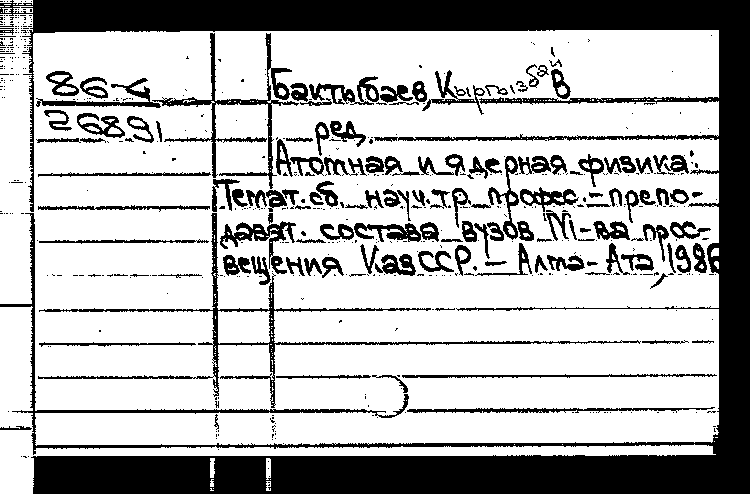 86-4
26891
Бактыбаев, Кыргызбай
ред.
Атомная и ядерная физика:
Темат. сб. науч. тр. профес.-препо-
дават. состава вузов М-ва прос-
вещения КазССР. – Алма-Ата, 1986